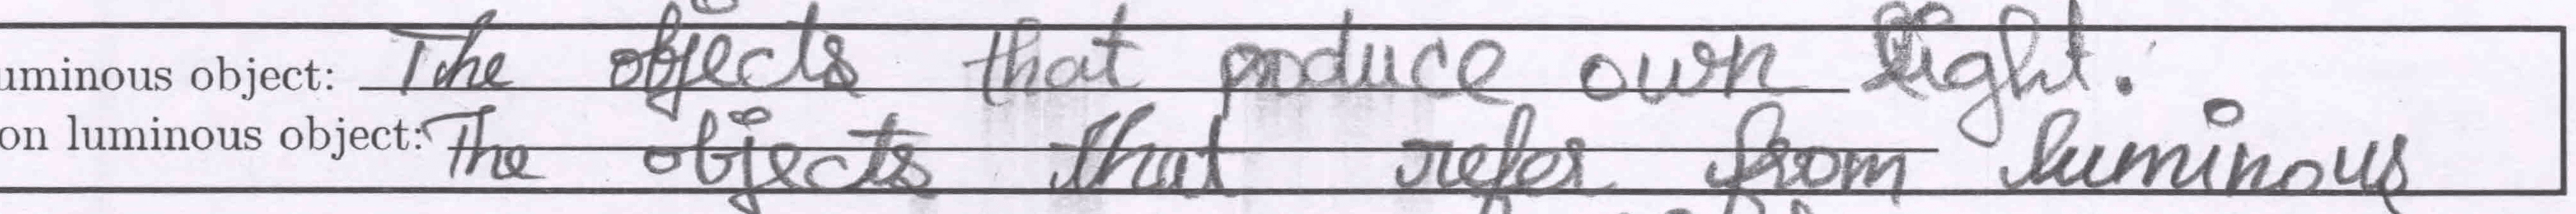 uminous object: The objects that produce own light.
on luminous object: The objects that refer from luminous